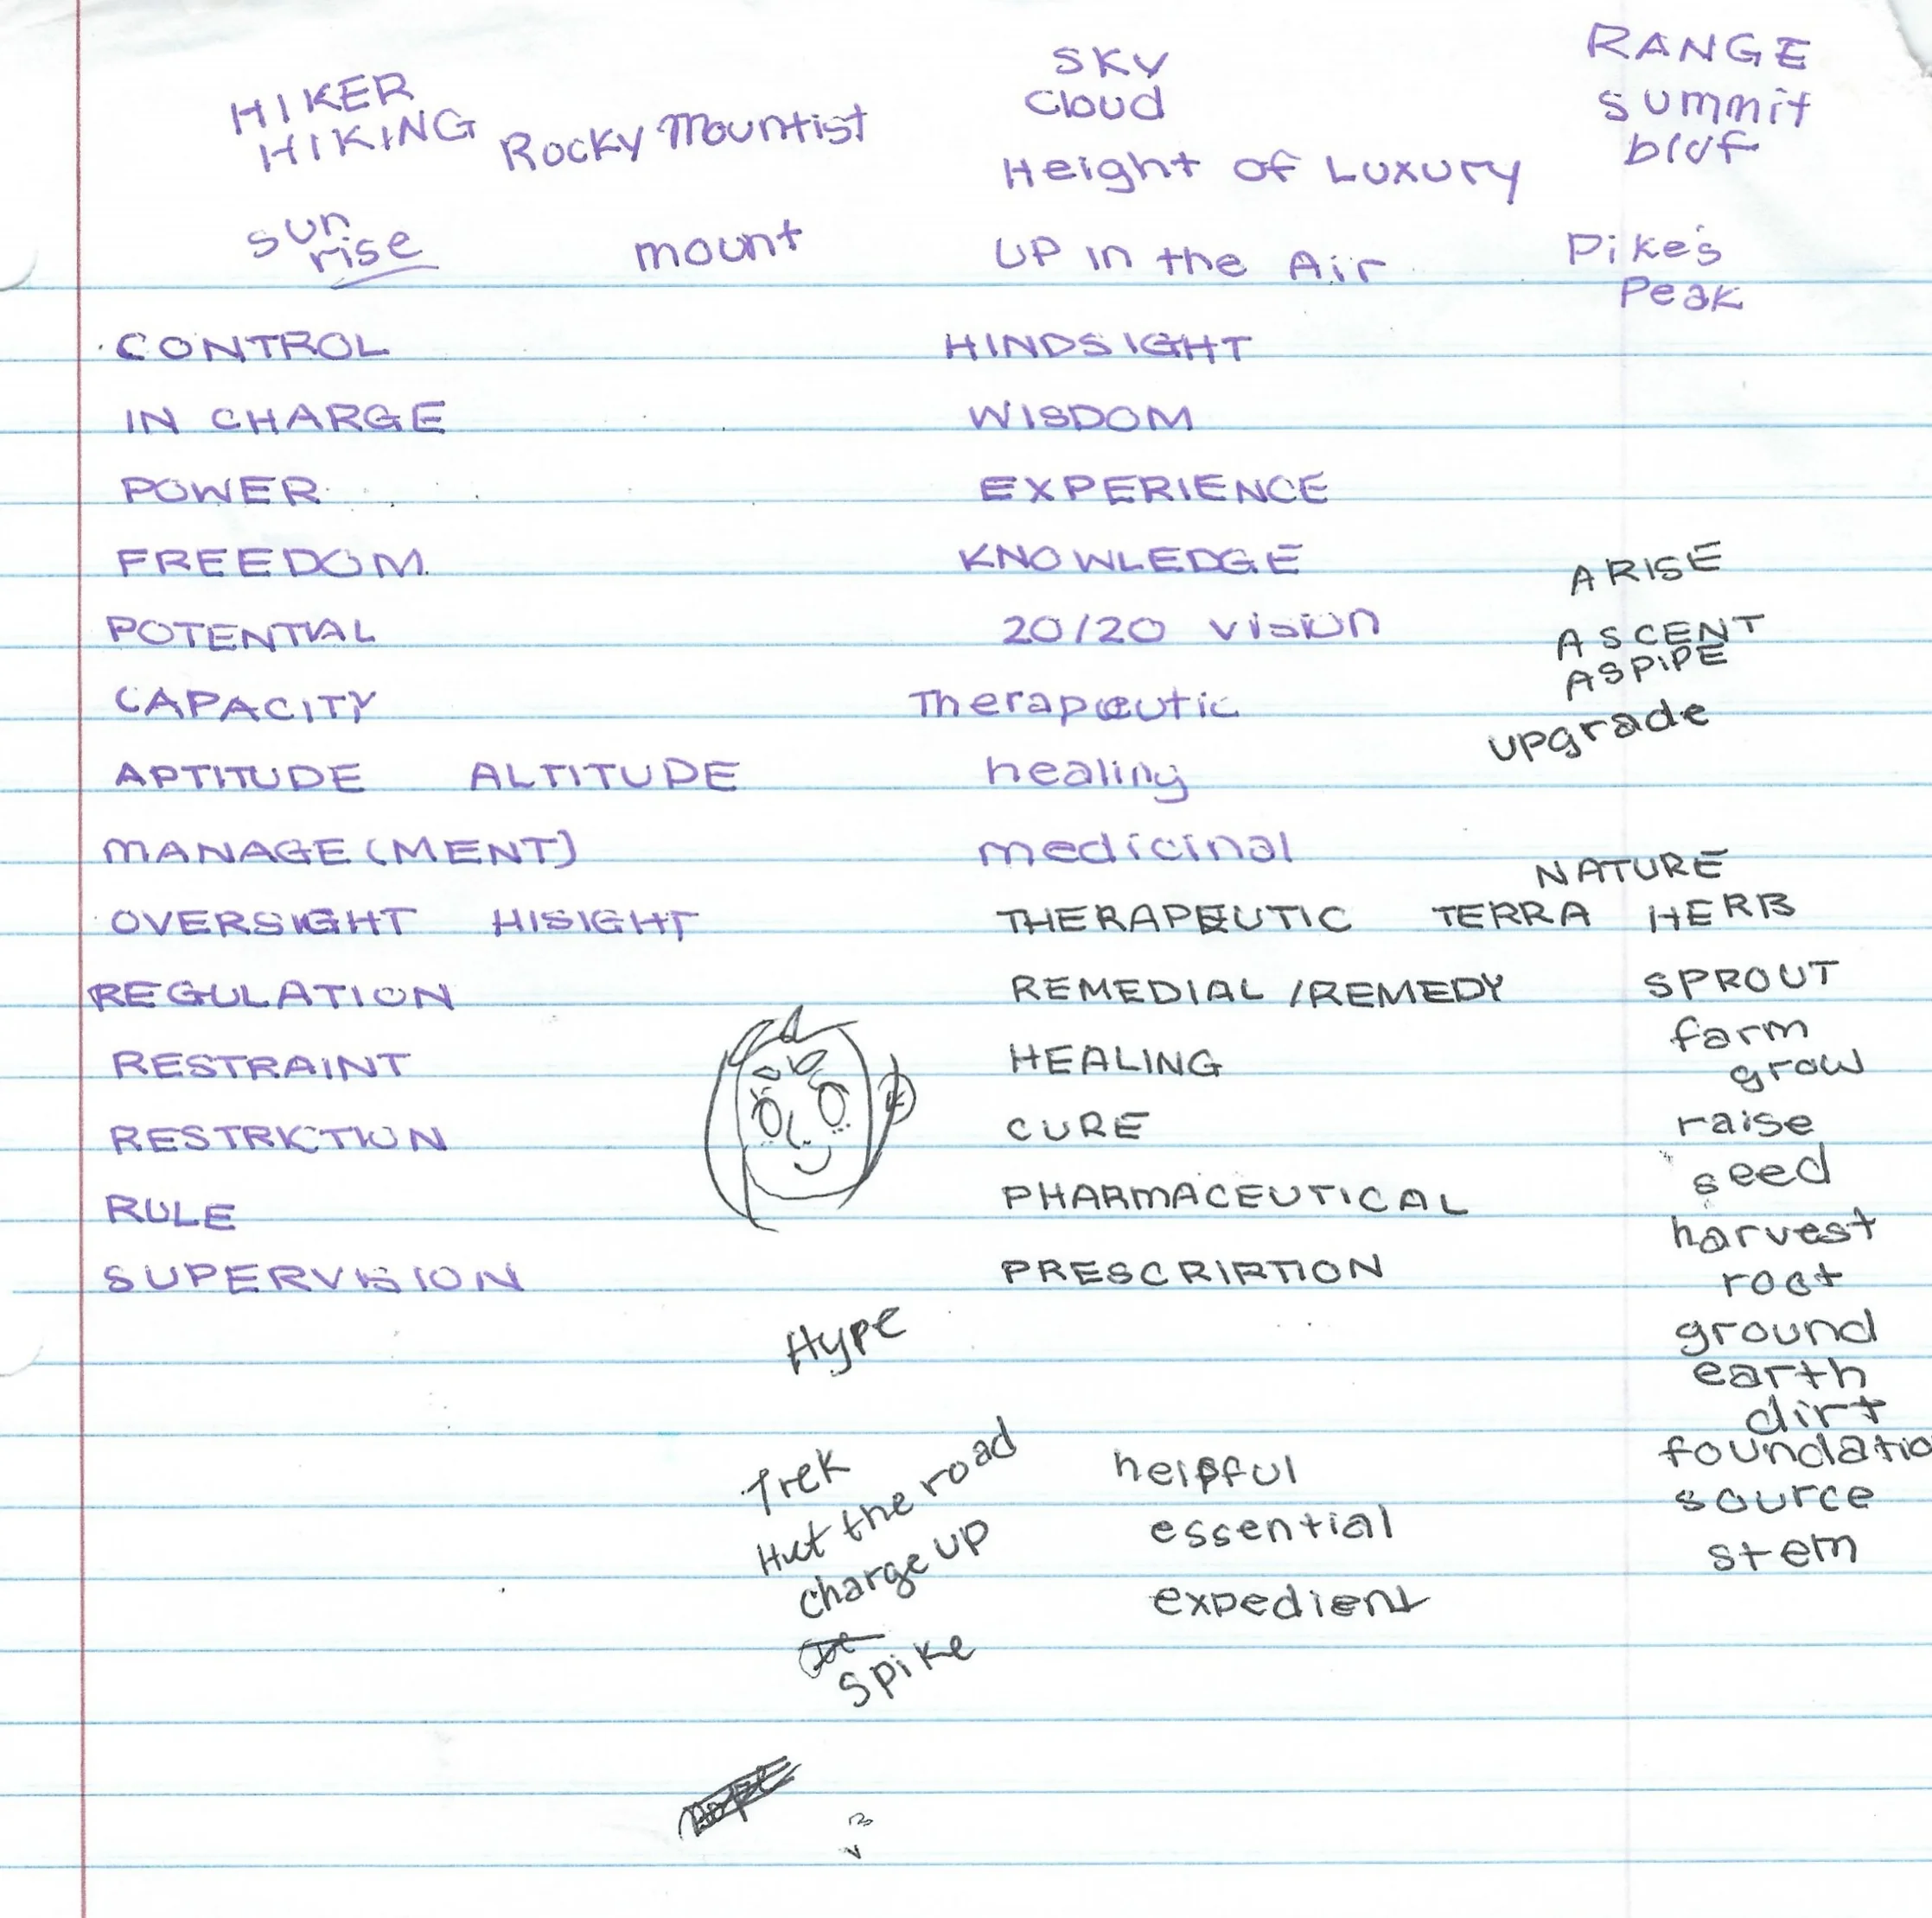 HIKER
HIKING
Rocky Mountist
SKY
Cloud
Height of Luxury
RANGE
summit
bluf
sun
rise
mount
UP in the Air
Pike's
Peak
CONTROL
HINDSIGHT
IN CHARGE
WISDOM
POWER
EXPERIENCE
FREEDOM
KNOWLEDGE
ARISE
POTENTIAL
20/20 vision
ASCENT
ASPIPE
CAPACITY
Therapeutic
upgrade
APTITUDE ALTITUDE
healing
MANAGE(MENT)
medicinal
NATURE
OVERSIGHT HISIGHT
THERAPEUTIC TERRA HERB
REGULATION
REMEDIAL /REMEDY
SPROUT
farm
grow
RESTRAINT
HEALING
RESTRICTION
CURE
raise
seed
RULE
PHARMACEUTICAL
harvest
SUPERVISION
PRESCRIPTION
root
Hype
ground
earth
dirt
foundatio
source
stem
Trek
Hut the road
charge UP
Spike
helpful
essential
expedient